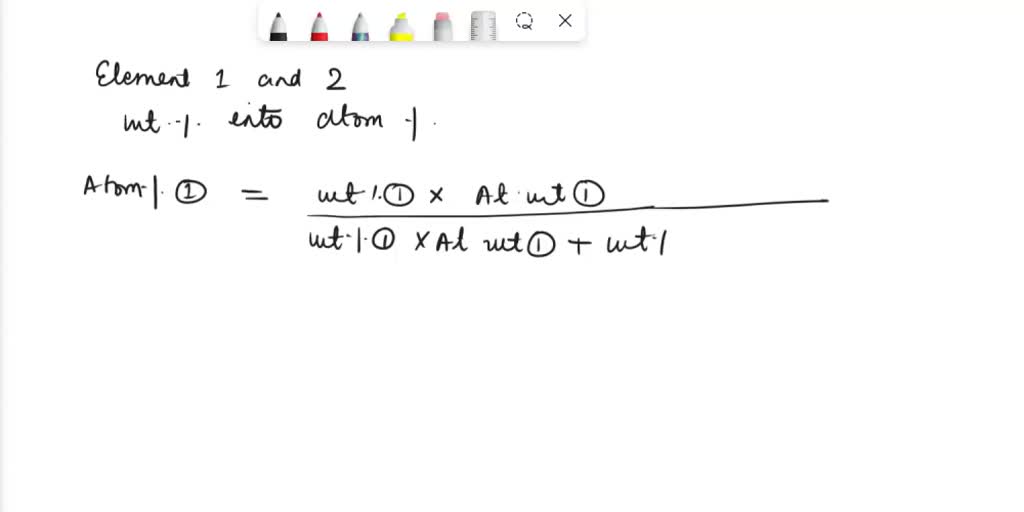 Element 1 and 2
wt.%. into atom %.
Atom%. ① = wt%.① × At.wt①
wt.%.① × At wt① + wt.%